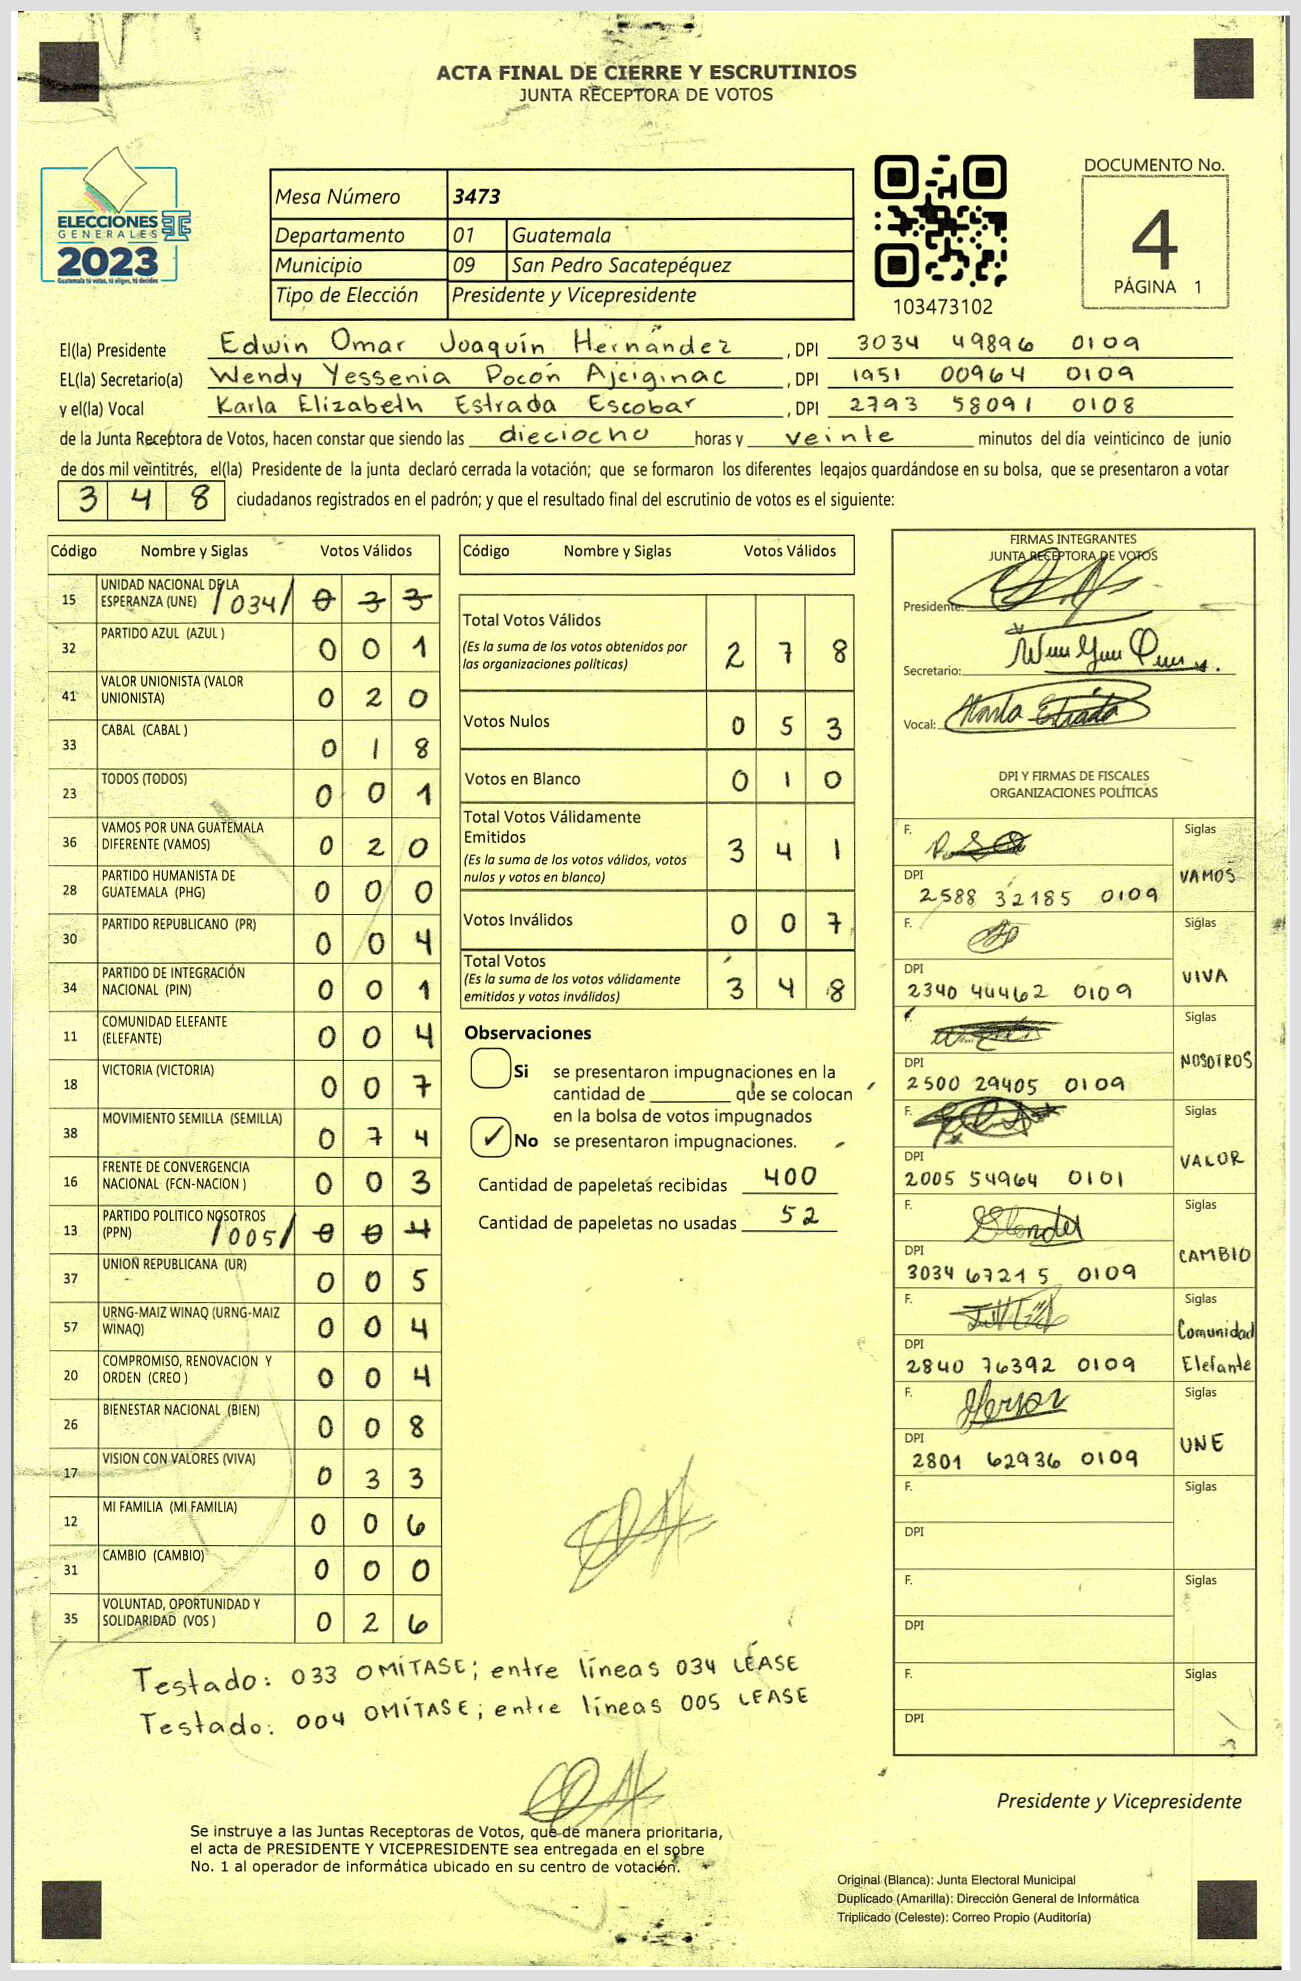 ACTA FINAL DE CIERRE Y ESCRUTINIOS
JUNTA RECEPTORA DE VOTOS
ELECCIONES
GENERALES
2023
Guatemala tú votas, tú eliges, tú decides
Mesa Número 3473
Departamento 01 Guatemala
Municipio 09 San Pedro Sacatepéquez
Tipo de Elección Presidente y Vicepresidente
103473102
DOCUMENTO No.
4
PÁGINA 1
El(la) Presidente Edwin Omar Joaquín Hernández , DPI 3034 49896 0109
EL(la) Secretario(a) Wendy Yessenia Pocón Ajciginac , DPI 1951 00964 0109
y el(la) Vocal Karla Elizabeth Estrada Escobar , DPI 2793 58091 0108
de la Junta Receptora de Votos, hacen constar que siendo las dieciocho horas y veinte minutos del día veinticinco de junio
de dos mil veintitrés, el(la) Presidente de la junta declaró cerrada la votación; que se formaron los diferentes legajos guardándose en su bolsa, que se presentaron a votar
3 4 8 ciudadanos registrados en el padrón; y que el resultado final del escrutinio de votos es el siguiente:
Código Nombre y Siglas Votos Válidos
15 UNIDAD NACIONAL DE LA
ESPERANZA (UNE) /034/ 0 3 3
32 PARTIDO AZUL (AZUL ) 0 0 1
41 VALOR UNIONISTA (VALOR
UNIONISTA) 0 2 0
33 CABAL (CABAL ) 0 1 8
23 TODOS (TODOS) 0 0 1
36 VAMOS POR UNA GUATEMALA
DIFERENTE (VAMOS) 0 2 0
28 PARTIDO HUMANISTA DE
GUATEMALA (PHG) 0 0 0
30 PARTIDO REPUBLICANO (PR) 0 0 4
34 PARTIDO DE INTEGRACIÓN
NACIONAL (PIN) 0 0 1
11 COMUNIDAD ELEFANTE
(ELEFANTE) 0 0 4
18 VICTORIA (VICTORIA) 0 0 7
38 MOVIMIENTO SEMILLA (SEMILLA) 0 7 4
16 FRENTE DE CONVERGENCIA
NACIONAL (FCN-NACION ) 0 0 3
13 PARTIDO POLITICO NOSOTROS
(PPN) /005/ 0 0 4
37 UNION REPUBLICANA (UR) 0 0 5
57 URNG-MAIZ WINAQ (URNG-MAIZ
WINAQ) 0 0 4
20 COMPROMISO, RENOVACION Y
ORDEN (CREO ) 0 0 4
26 BIENESTAR NACIONAL (BIEN) 0 0 8
17 VISION CON VALORES (VIVA) 0 3 3
12 MI FAMILIA (MI FAMILIA) 0 0 6
31 CAMBIO (CAMBIO) 0 0 0
35 VOLUNTAD, OPORTUNIDAD Y
SOLIDARIDAD (VOS ) 0 2 6
Código Nombre y Siglas Votos Válidos
Total Votos Válidos
(Es la suma de los votos obtenidos por
las organizaciones políticas) 2 7 8
Votos Nulos 0 5 3
Votos en Blanco 0 1 0
Total Votos Válidamente
Emitidos
(Es la suma de los votos válidos, votos
nulos y votos en blanco) 3 4 1
Votos Inválidos 0 0 7
Total Votos
(Es la suma de los votos válidamente
emitidos y votos inválidos) 3 4 8
Observaciones
Si se presentaron impugnaciones en la
cantidad de ________ que se colocan
en la bolsa de votos impugnados
✓ No se presentaron impugnaciones.
Cantidad de papeletas recibidas 400
Cantidad de papeletas no usadas 52
FIRMAS INTEGRANTES
JUNTA RECEPTORA DE VOTOS
Presidente:
Secretario:
Vocal: Karla Estrada
DPI Y FIRMAS DE FISCALES
ORGANIZACIONES POLÍTICAS
F. Siglas
DPI VAMOS
2588 32185 0109
F. Siglas
DPI VIVA
2340 44462 0109
F. Siglas
DPI NOSOTROS
2500 29405 0109
F. Siglas
DPI VALOR
2005 54964 0101
F. Siglas
DPI CAMBIO
3034 67215 0109
F. Siglas
Comunidad
DPI Elefante
2840 76392 0109
F. Siglas
DPI UNE
2801 62936 0109
F. Siglas
DPI
F. Siglas
DPI
F. Siglas
DPI
Testado: 033 OMÍTASE; entre líneas 034 LÉASE
Testado: 004 OMÍTASE; entre líneas 005 LEASE
Presidente y Vicepresidente
Se instruye a las Juntas Receptoras de Votos, que de manera prioritaria,
el acta de PRESIDENTE Y VICEPRESIDENTE sea entregada en el sobre
No. 1 al operador de informática ubicado en su centro de votación.
Original (Blanca): Junta Electoral Municipal
Duplicado (Amarilla): Dirección General de Informática
Triplicado (Celeste): Correo Propio (Auditoría)